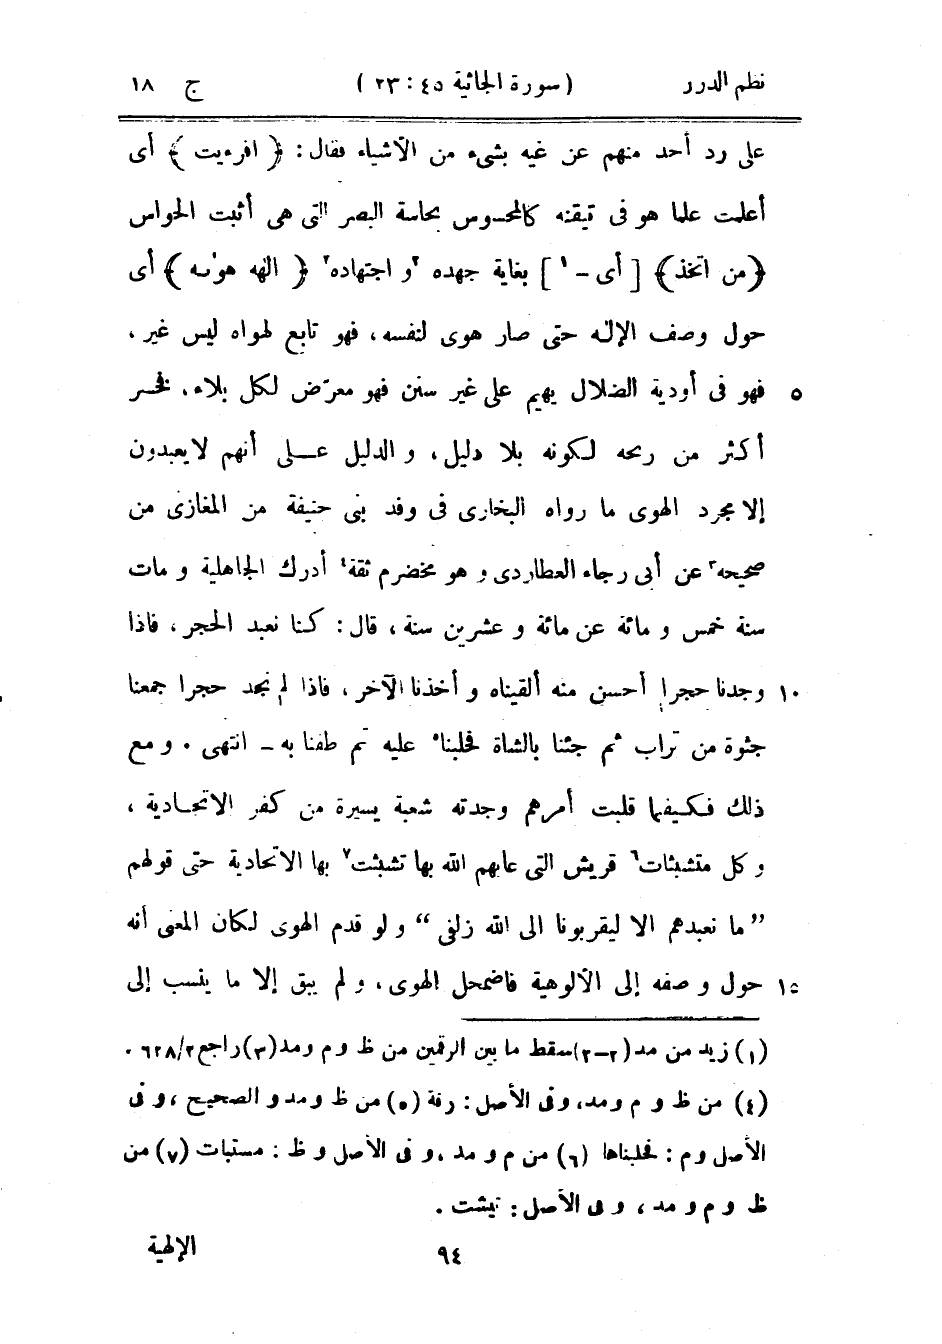 نظم الدرر (سورة الجاثية ٤٥ : ٢٣) ج ١٨
على رد أحد منهم عن غيه بشىء من الأشياء فقال : ﴿ افرءيت ﴾ أى
أعلمت علما هو فى تيقنه كالمحسوس بحاسة البصر التى هى أثبت الحواس
﴿من اتخذ﴾ [ أى - ١ ] بغاية جهده ٢و اجتهاده٢ ﴿ الهه هوٰىه ﴾ أى
حول وصف الإلٰه حتى صار هوى لنفسه، فهو تابع لهواه ليس غير،
٥ فهو فى أودية الضلال يهيم على غير سنن فهو معرّض لكل بلاء، فخسر
أكثر من ربحه لكونه بلا دليل، و الدليل عـلى أنهم لا يعبدون
إلا مجرد الهوى ما رواه البخارى فى وفد بنى حنيفة من المغازى من
صحيحه٣ عن أبى رجاء العطاردى و هو مخضرم ثقة٤ أدرك الجاهلية و مات
سنة خمس و مائة عن مائة و عشرين سنة، قال : كنا نعبد الحجر، فاذا
١٠ وجدنا حجرا أحسن منه ألقيناه و أخذنا الآخر، فاذا لم نجد حجرا جمعنا
جثوة من تراب ثم جئنا بالشاة فحلبنا٥ عليه ثم طفنا به - انتهى . و مع
ذلك فكيفما قلبت أمرهم وجدته شعبة يسيرة من كفر الاتحادية ،
و كل متشبثات٦ قريش التى عابهم الله بها تشبثت٧ بها الاتحادية حتى قولهم
” ما نعبدهم الا ليقربونا الى الله زلفى “ و لو قدم الهوى لكان المعنى أنه
١٥ حول وصفه إلى الألوهية فاضمحل الهوى، و لم يبق إلا ما ينسب إلى
(١) زيد من مد (٢-٢) سقط ما بين الرقمين من ظ و م ومد (٣) راجع ٦٢٨/٢ .
(٤) من ظ و م ومد، وفى الأصل : رفة (٥) من ظ ومد و الصحيح ، و فى
الأصل و م : فحلبناها (٦) من م و مد ، و فى الأصل و ظ : مستبات (٧) من
ظ و م و مد ، و فى الأصل : تيشت .
٩٤ الإلٰهية